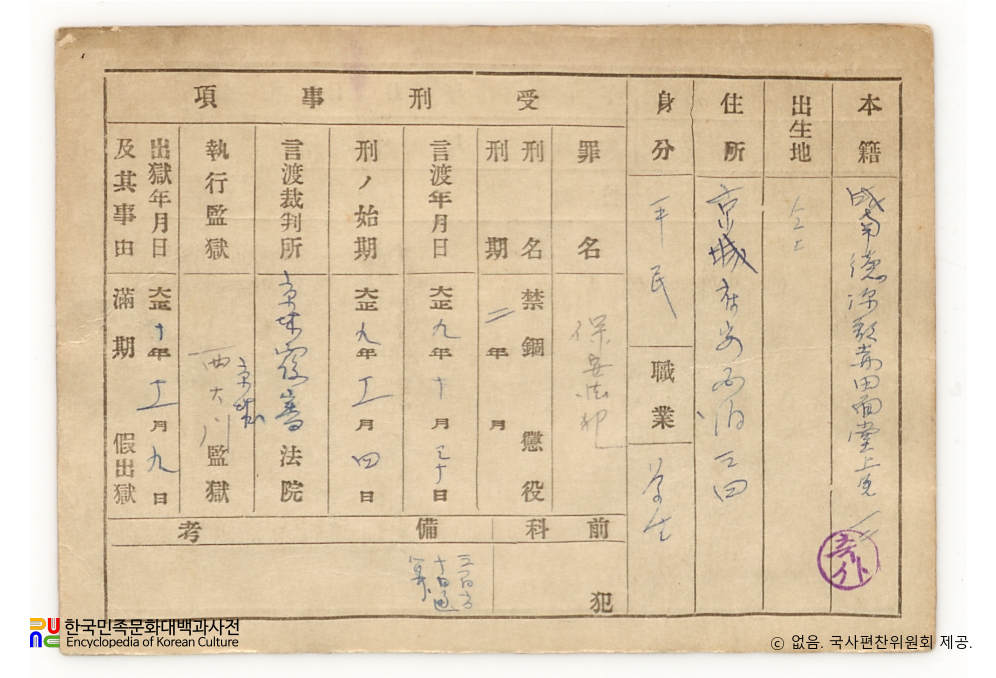 本籍
咸南德源郡赤田面堂上里
出生地
仝上
住所
京城府安
身分
平民
職業
学生
受刑事項
罪名
保安法犯
刑名
禁錮 懲役
刑期
二年 月
言渡年月日
大正九年十月三十日
刑ノ始期
大正九年 月四日
言渡裁判所
京城覆審法院
執行監獄
京城
西大門監獄
出獄年月日及其事由
大正十年 月九日
滿期 假出獄
前科
犯
備考
촉사
한국민족문화대백과사전
Encyclopedia of Korean Culture
ⓒ 없음. 국사편찬위원회 제공.